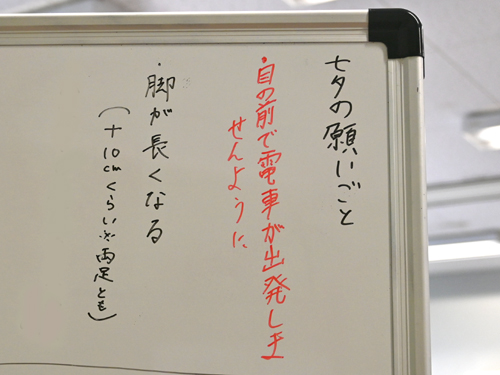 七夕の願いごと
・目の前で電車が出発しま
せんように
・脚が長くなる
(+10cmくらい※両足とも)